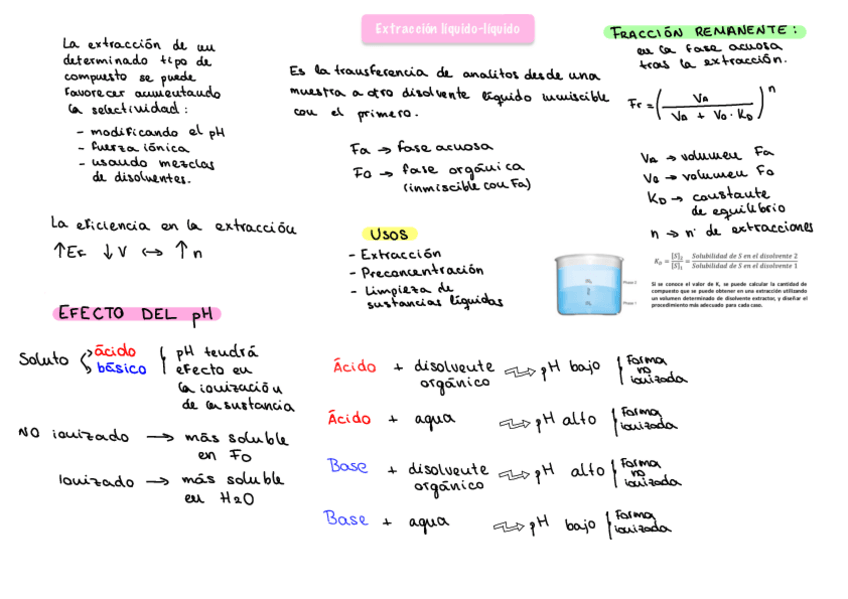 Extracción líquido-líquido
La extracción de un
determinado tipo de
compuesto se puede
favorecer aumentando
la selectividad:
- modificando el pH
- fuerza iónica
- usando mezclas
de disolventes.
La eficiencia en la extracción
↑EF ↓V ↔ ↑n
Es la transferencia de analitos desde una
muestra a otro disolvente líquido inmiscible
con el primero.
Fa → fase acuosa
Fo → fase orgánica
(inmiscible con Fa)
USOS
- Extracción
- Preconcentración
- Limpieza de
sustancias líquidas
FRACCIÓN REMANENTE:
en la fase acuosa
tras la extracción.
Fr = (VA / (VA + Vo · KD))^n
VA → volumen Fa
Vo → volumen Fo
KD → constante
de equilibrio
n → nº de extracciones
K_D = [S]2/[S]1 = Solubilidad de S en el disolvente 2 / Solubilidad de S en el disolvente 1
Si se conoce el valor de K, se puede calcular la cantidad de
compuesto que se puede obtener en una extracción utilizando
un volumen determinado de disolvente extractor, y diseñar el
procedimiento más adecuado para cada caso.
Phase 2
Phase 1
EFECTO DEL pH
Soluto ácido
básico
pH tendrá
efecto en
la ionización
de la sustancia
NO ionizado → más soluble
en Fo
Ionizado → más soluble
en H2O
Ácido + disolvente orgánico ⇒ pH bajo { Forma no ionizada
Ácido + agua ⇒ pH alto { Forma ionizada
Base + disolvente orgánico ⇒ pH alto { Forma no ionizada
Base + agua ⇒ pH bajo { Forma ionizada